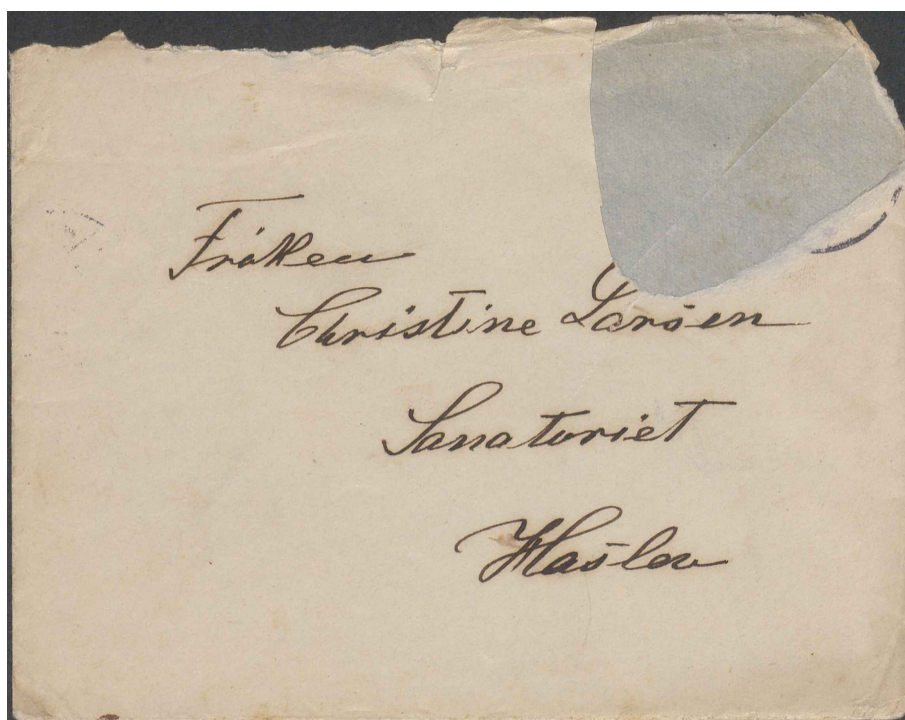 Fröken
Christine Larsen
Sanatoriet
Haslev